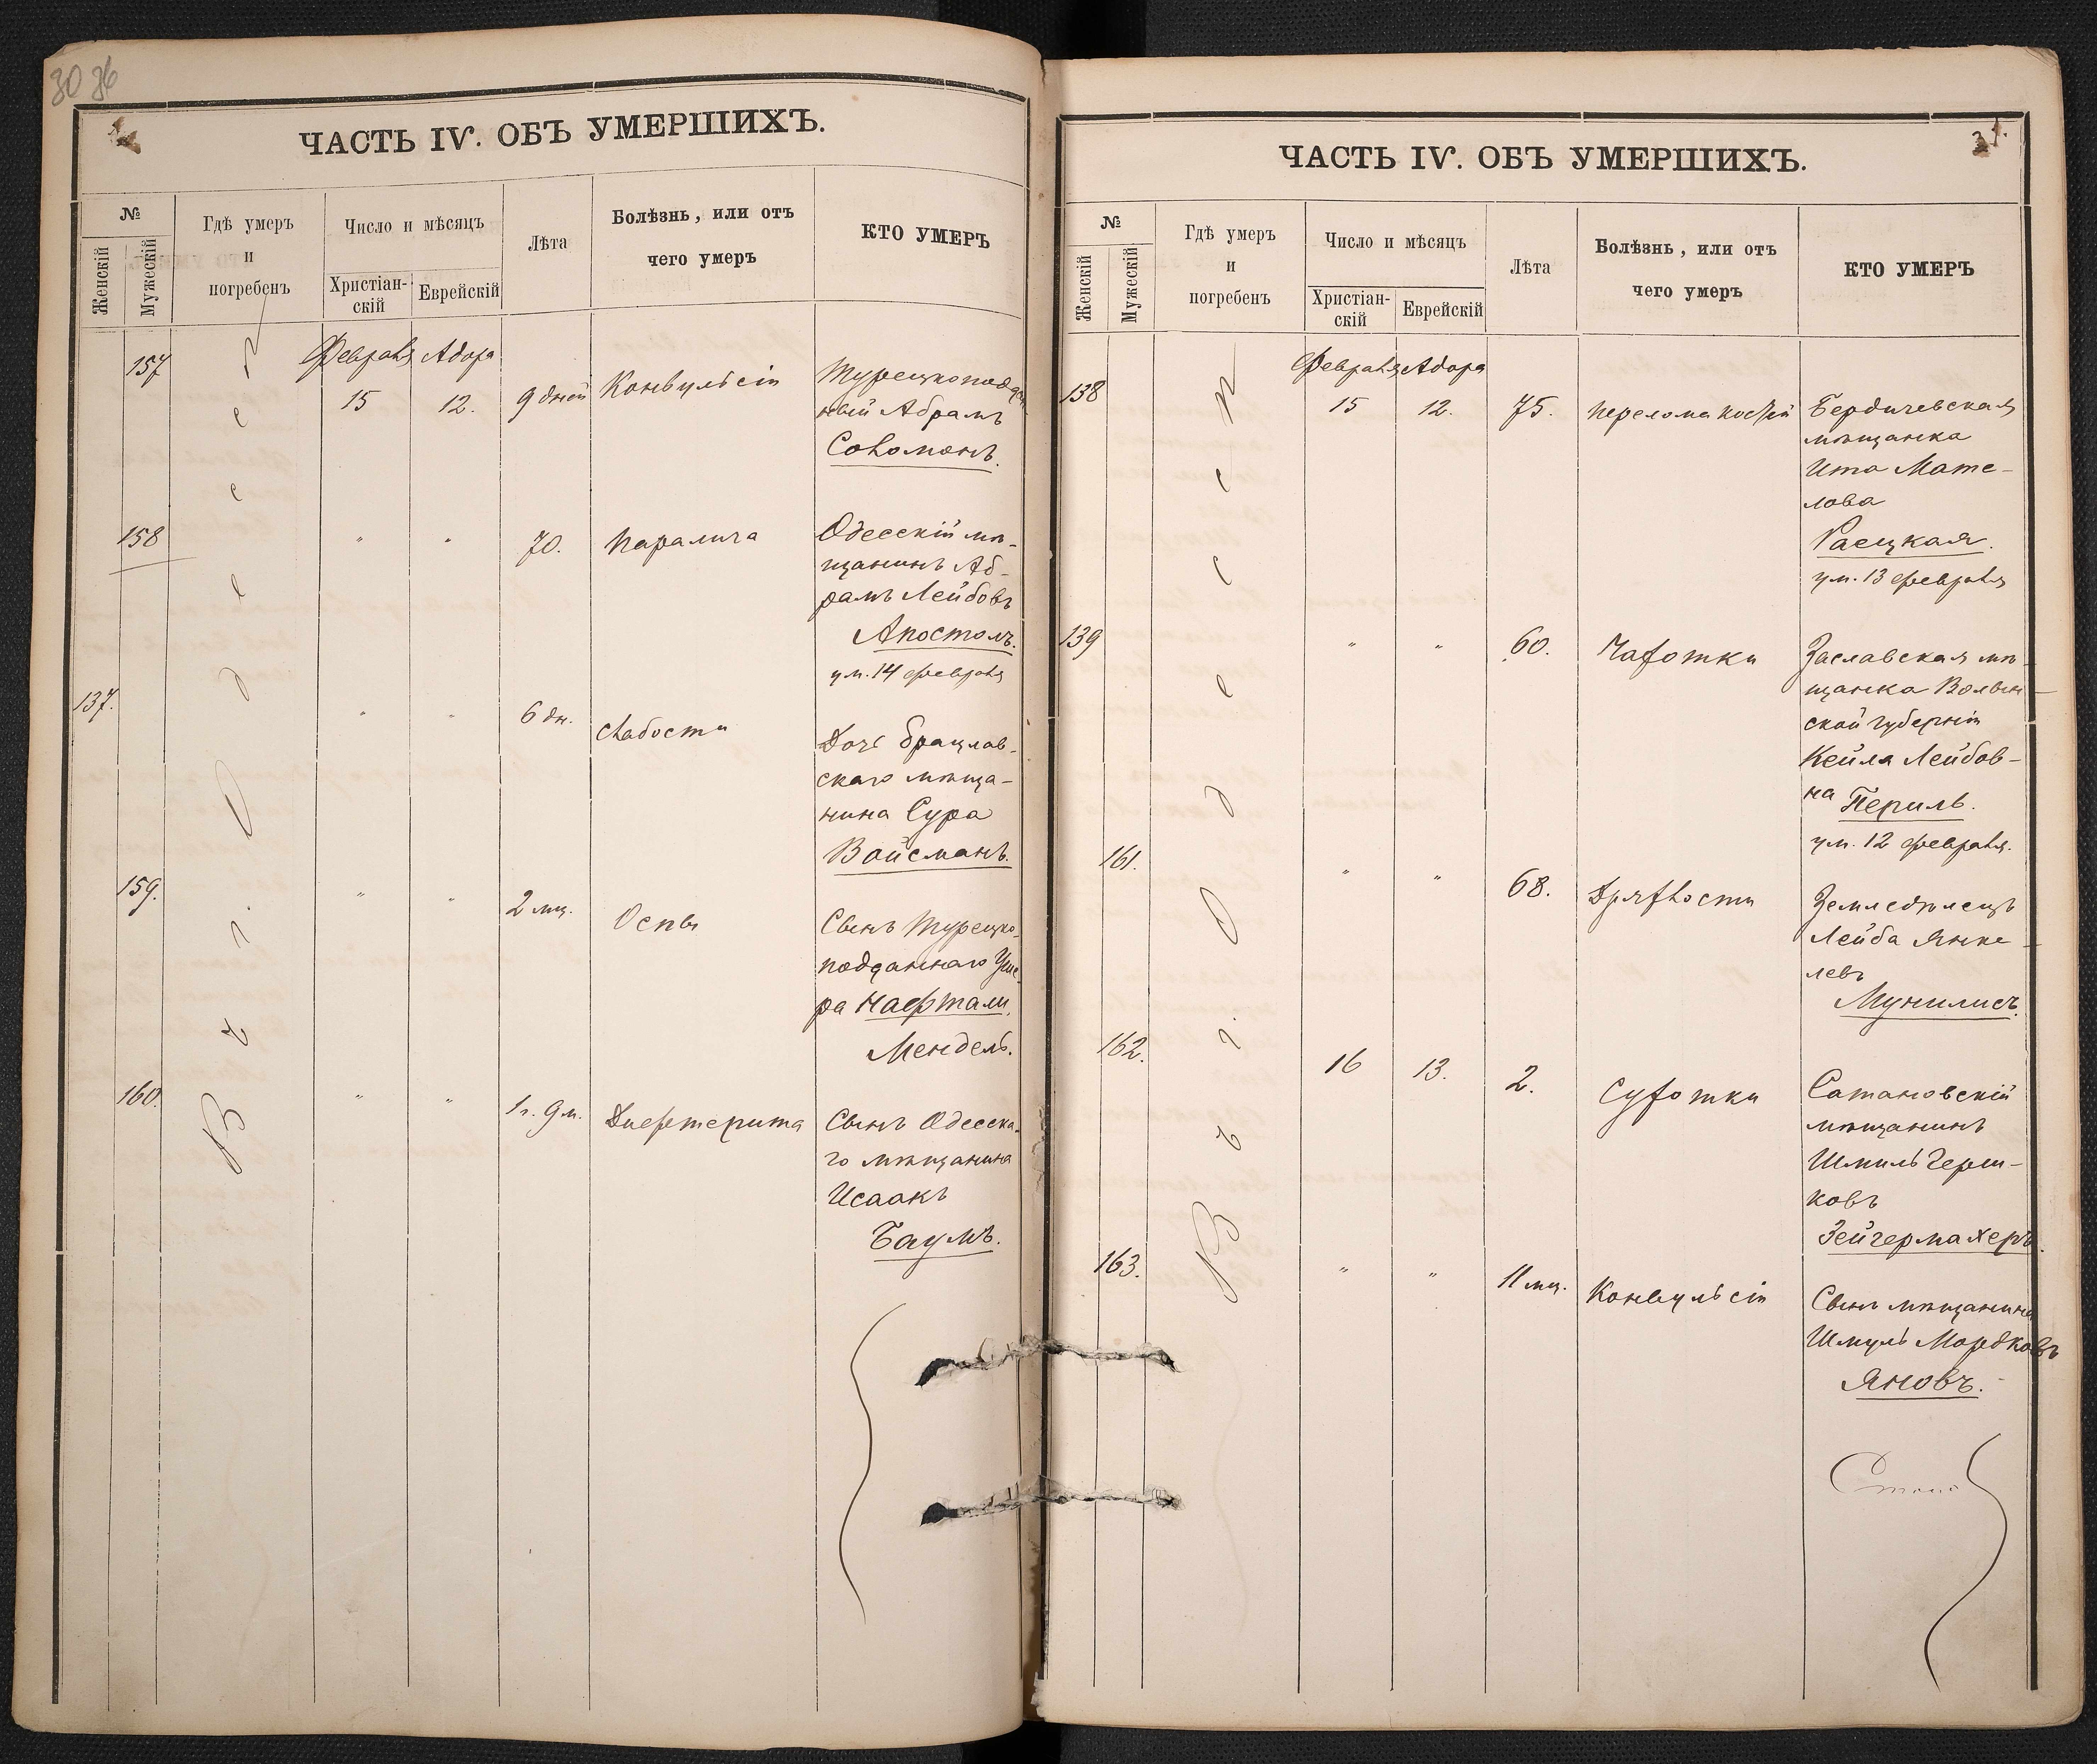 30 36
ЧАСТЬ IV. ОБЪ УМЕРШИХЪ.
№
Женскій
Мужескій
Гдѣ умеръ
и
погребенъ
Число и мѣсяцъ
Христіан-
скій
Еврейскій
Лѣта
Болѣзнь, или отъ
чего умеръ
КТО УМЕРЪ
Въ г. Одессѣ
Февраля Адора
157 15 12. 9 дней Конвульсіи
Турецкоподдан
ный Абрамъ
Соломонъ.
158 " " 70. Паралича
Одесскій мѣ-
щанинъ Аб-
рамъ Лейбовъ
Апостолъ.
ум. 14 февраля
137. " " 6 дн. Слабости
Дочь брацлав-
скаго мѣща-
нина Сура
Вайсманъ.
159. " " 2 мц. Оспы
Сынъ Турецко-
подданнаго Уше
ра Нафтали
Мендель.
160. " " 1 г. 9 м. Дифтерита
Сынъ Одесска-
го мѣщанина
Исаакъ
Баумъ.
31.
ЧАСТЬ IV. ОБЪ УМЕРШИХЪ.
№
Женскій
Мужескій
Гдѣ умеръ
и
погребенъ
Число и мѣсяцъ
Христіан-
скій
Еврейскій
Лѣта
Болѣзнь, или отъ
чего умеръ
КТО УМЕРЪ
Въ г. Одессѣ
Февраля Адора
138 15 12. 75. Перелома костей
Бердичевская
мѣщанка
Ита Мате-
лова
Раецкая.
ум. 13 февраля
139 " " 60. Чахотки
Заславская мѣ-
щанка Волын-
ской губерніи
Кейла Лейбов-
на Периль.
ум. 12 февраля.
161. " " 68. Дряхлости
Земледѣлецъ
Лейба Янке-
левъ
Мунилисъ.
162. 16 13. 2. Сухотки
Сатановскій
мѣщанинъ
Шмиль Герш-
ковъ
Зейгермахеръ.
163. " " 11 мц. Конвульсіи
Сынъ мѣщанина
Шмуль Мордковъ
Яновъ.